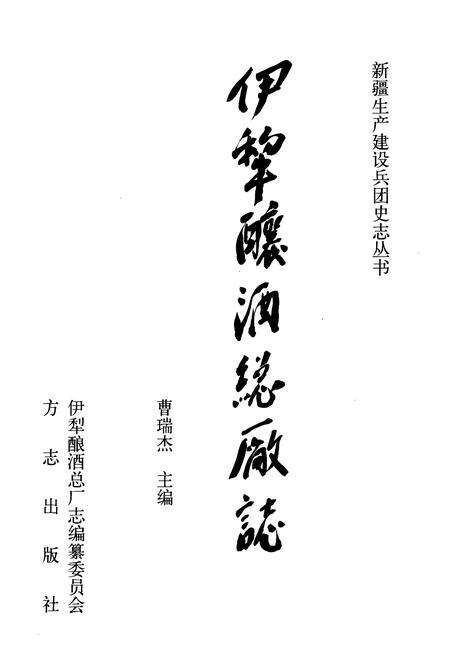 新疆生产建设兵团史志丛书
伊犂釀酒総廠誌
曹瑞杰 主编
伊犁酿酒总厂志编纂委员会
方志出版社